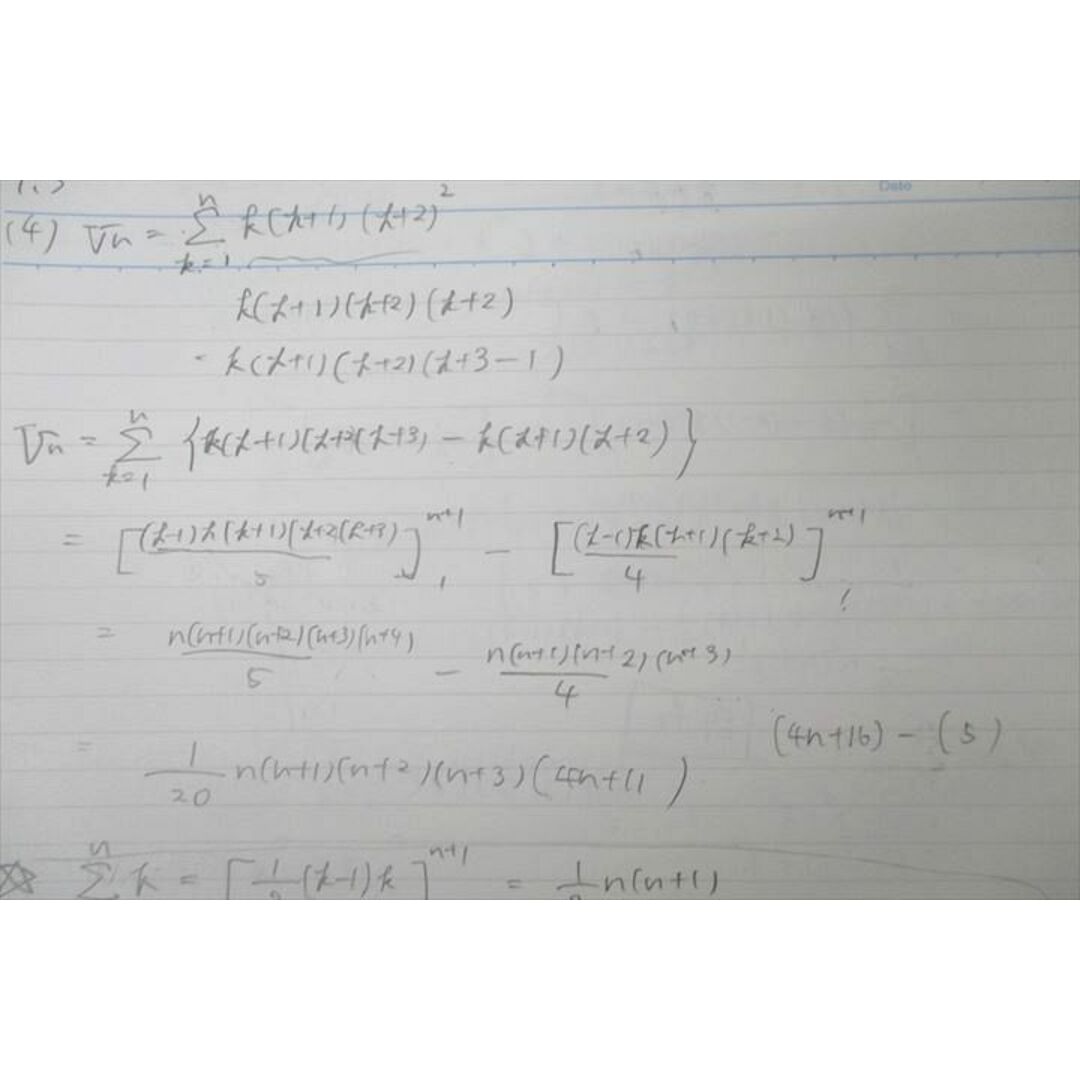 Date
(4) Vn = Σ_{k=1}^{n} k(k+1)(k+2)^2
k(k+1)(k+2)(k+2)
= k(k+1)(k+2)(k+3-1)
Vn = Σ_{k=1}^{n} {k(k+1)(k+2(k+3) - k(k+1)(k+2)}
= [(k-1)k(k+1)(k+2(k+3)/5]_1^{n+1} - [(k-1)k(k+1)(k+2)/4]_1^{n+1}
= n(n+1)(n+2)(n+3)(n+4)/5 - n(n+1)(n+2)(n+3)/4
(4n+16) - (5)
= 1/20 n(n+1)(n+2)(n+3)(4n+11)
☆ Σ^{n} k = [1/2(k-1)k]^{n+1} = 1/2 n(n+1)